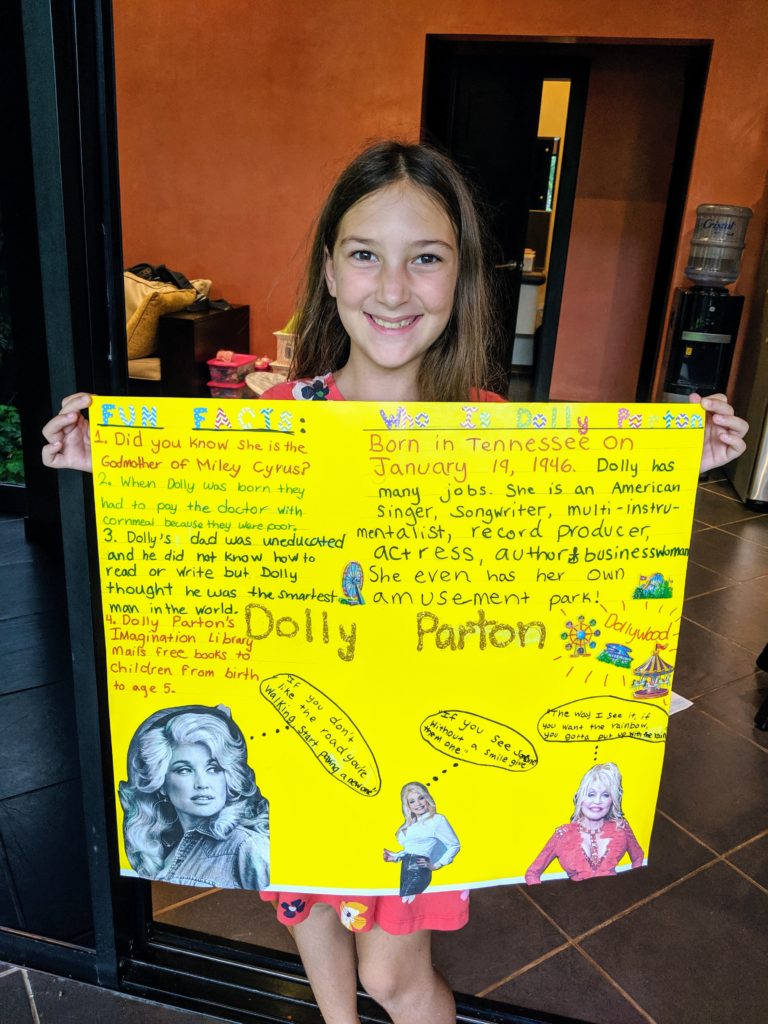 FUN FACTS:
1. Did you know she is the
Godmother of Miley Cyrus?
2. When Dolly was born they
had to pay the doctor with
cornmeal because they were poor.
3. Dolly's dad was uneducated
and he did not know how to
read or write but Dolly
thought he was the smartest
man in the world.
4. Dolly Parton's
Imagination Library
mails free books to
children from birth
to age 5.
Who Is Dolly Parton
Born in Tennessee on
January 19, 1946. Dolly has
many jobs. She is an American
singer, songwriter, multi-instru-
mentalist, record producer,
actress, author & businesswoman
She even has her own
amusement park!
Dolly Parton
Dollywood
"If you don't
like the road you're
walking start paving a new one"
"If you see someone
without a smile give
them one."
"The way I see it, if
you want the rainbow,
you gotta put up with the rain
Cristal